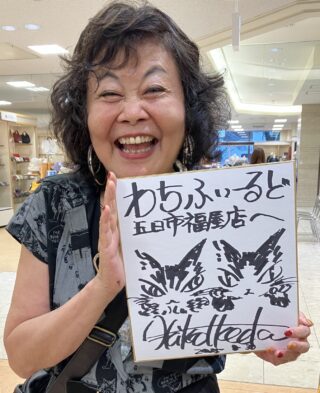 わちふぃーるど
五日市福屋店へ
Akiko Ikeda